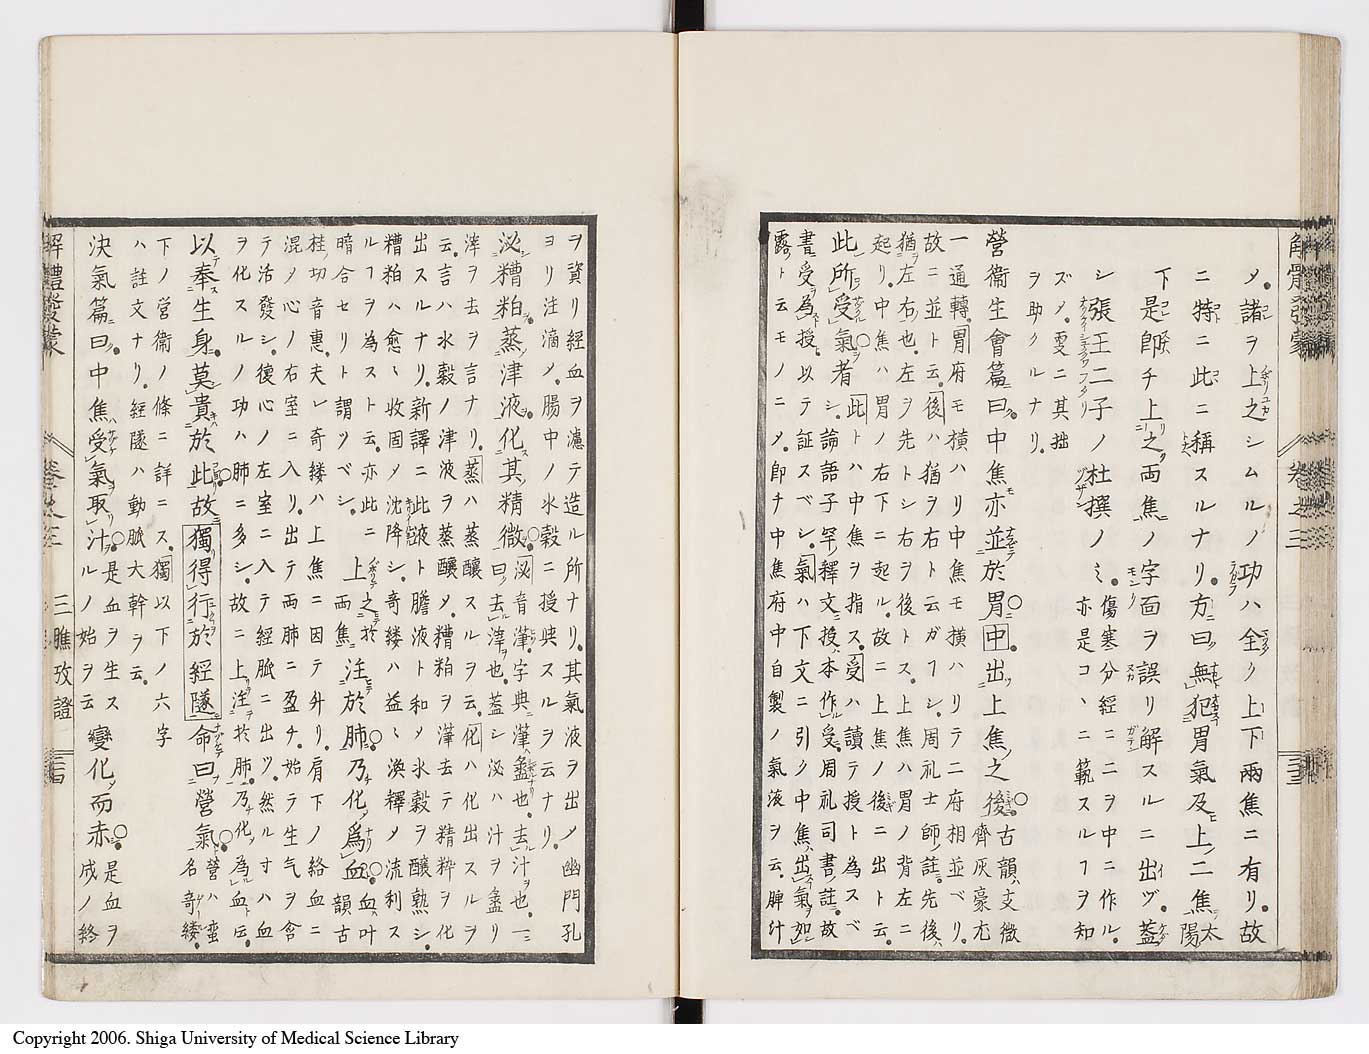 メ諸ヲ上之シムルノ功ハ全ク上下兩焦ニ有リ故
ニ特ニ此ニ稱スルナリ方曰無犯胃氣及上二焦太陽
下是卽チ上之兩焦ノ字面ヲ誤リ解スルニ出ヅ蓋
シ張王二子ノ杜撰ノミ傷寒分經ニニヲ中ニ作ル
亦是コヽニ範スルフヲ知
ズメ雯ニ其拙
ヲ助クルナリ
營衞生會篇曰中焦亦並於胃中出上焦之後古韻文微齊灰豪尤
一通轉胃府モ橫ハリ中焦モ橫ハリテ二府相並ベリ
故ニ並ト云後ハ猶ヲ右ト云ガフシ周礼士師註先後
猶左右也左ヲ先トシ右ヲ後トス上焦ハ胃ノ背左ニ
起リ中焦ハ胃ノ右下ニ起ル故ニ上焦ノ後ニ出ト云
此所受氣者此トハ中焦ヲ指ス受ハ讀テ授ト為スベ
シ論語子罕釋文授本作受周礼司書註故
書受為授以テ証スベシ氣ハ下文ニ引ク中焦出氣如
露ト云モノニメ即チ中焦府中自製ノ氣液ヲ云脾汁
ヲ資リ經血ヲ濾テ造ル所ナリ其氣液ヲ出メ幽門孔
ヨリ注滴メ腸中ノ水穀ニ授與スルヲ云ナリ
泌糟粕蒸津液化其精微泌音滗字典滗盝也去汁也一
曰去滓也蓋シ泌ハ汁ヲ盝リ
滓ヲ去ヲ言ナリ蒸ハ蒸釀スルナリ化ハ化出スルヲ
云言ハ水穀ノ津液ヲ蒸釀メ糟粕ヲ滗去テ精粹ヲ化
出スルナリ新譯ニ此液ト膽液ト和メ水穀ヲ釀熟シ
糟粕ハ愈〻收固メ沈降シ奇縷ハ益〻渙釋メ流利ス
ルフヲ為スト云亦此ニ
暗合セリト謂ツベシ
上之於兩焦注於肺乃化爲血血叶韻古
桂切音惠夫レ奇縷ハ上焦ニ因テ升リ肩下ノ絡血ニ
混メ心ノ右室ニ入リ出テ両肺ニ盈チ始テ生气ヲ含
テ活發シ復心ノ左室ニ入テ經脈ニ出ヅ然ル寸ハ血
ヲ化スルノ功ハ肺ニ多シ故ニ上注於肺乃化為血ト云
以奉生身莫貴於此故獨得行於經隧命曰營氣營ハ蛮名奇縷
下ノ營衞ノ條ニ詳ニス獨以下ノ六字
ハ註文ナリ經隧ハ動脈大幹ヲ云
決氣篇曰中焦受氣取汁是血ヲ生ス
ルノ始ヲ云
變化而赤是血ヲ成ノ終
解體發蒙
卷之三
三膲攷證
Copyright 2006. Shiga University of Medical Science Library